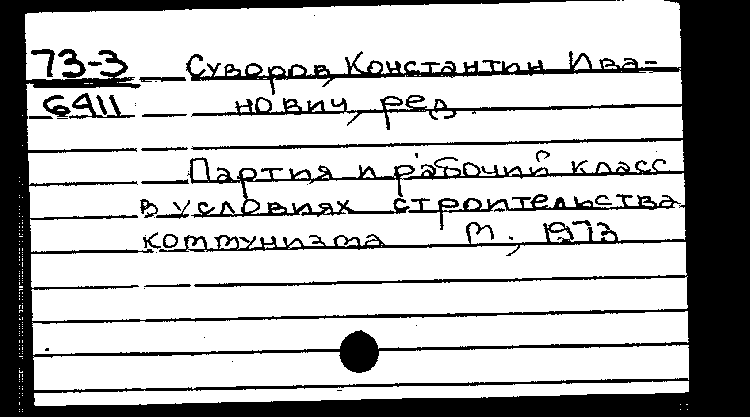 73-3 Суворов, Константин Ива-
6411 нович, ред.
Партия и рабочий класс
в условиях строительства
коммунизма М., 1973